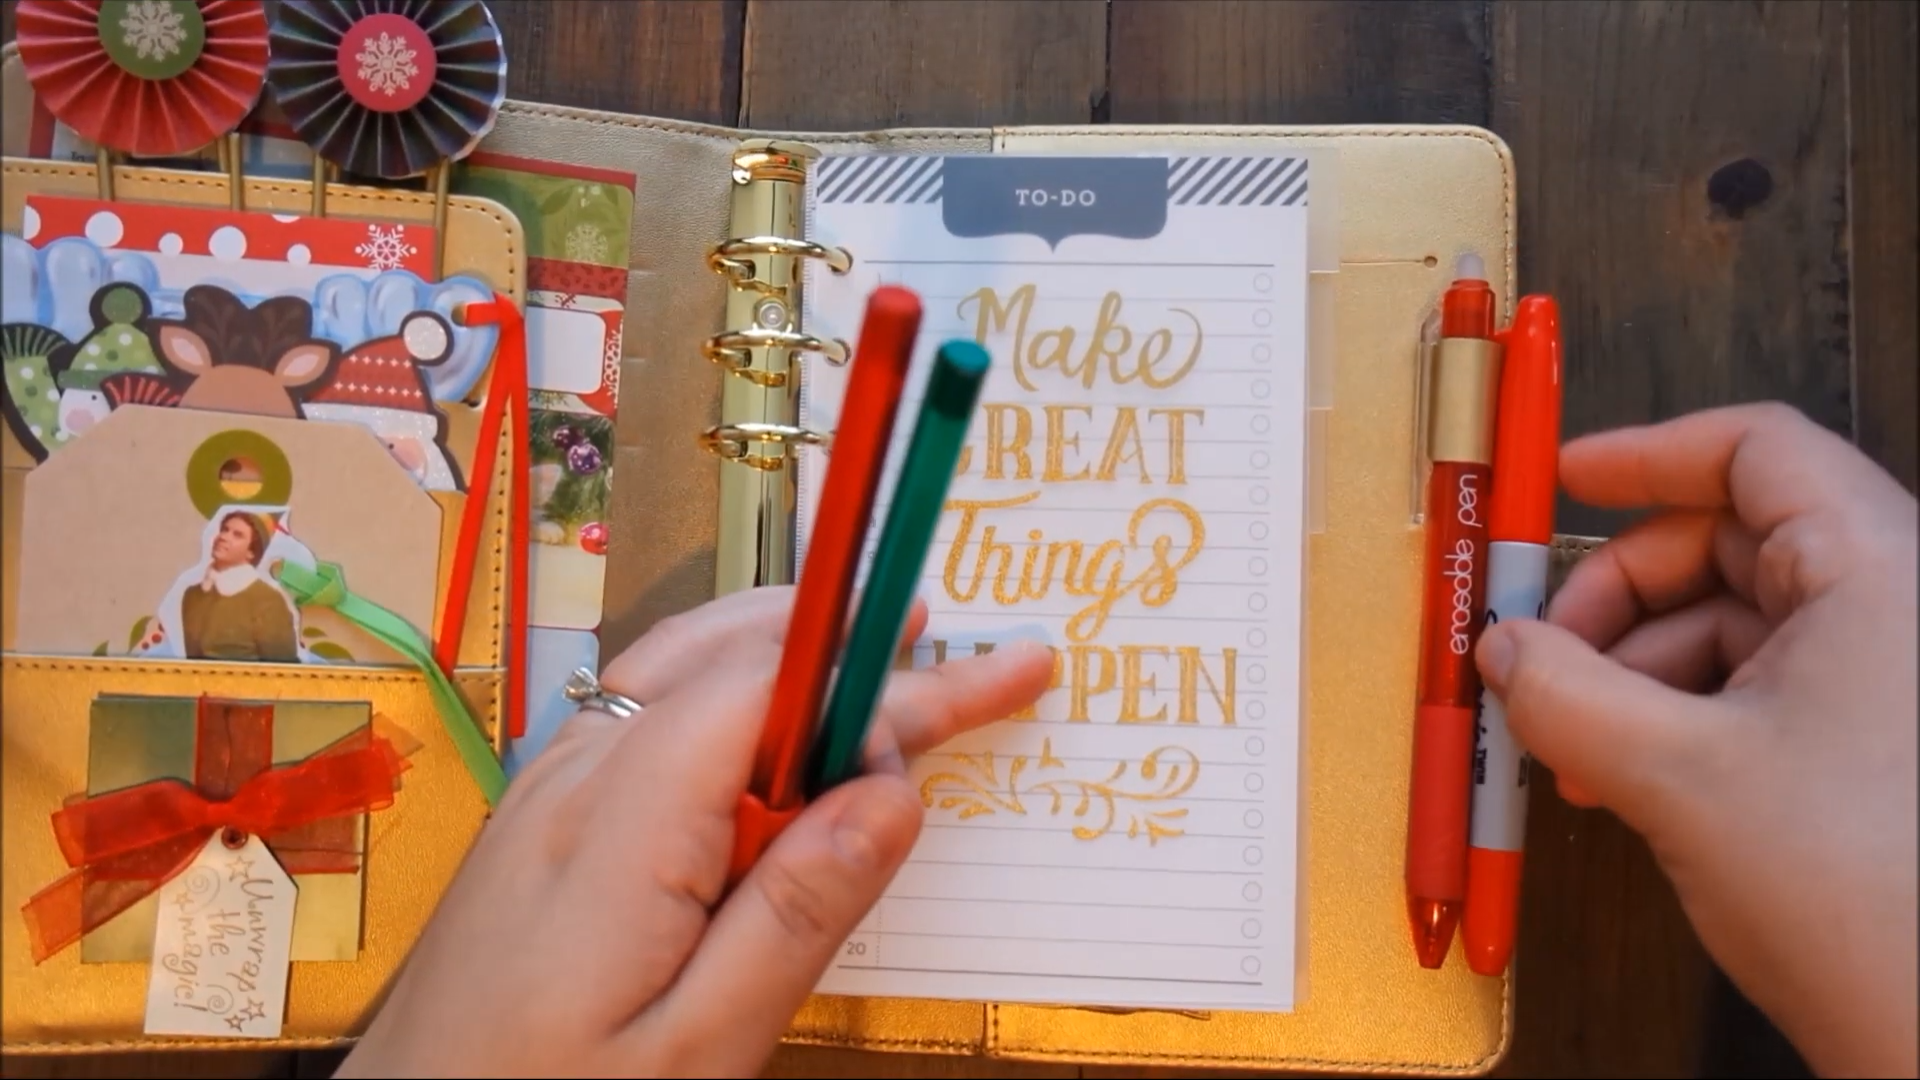 TO-DO
Make
GREAT
Things
HAPPEN
20
erasable pen
Unwrap
the
magic!